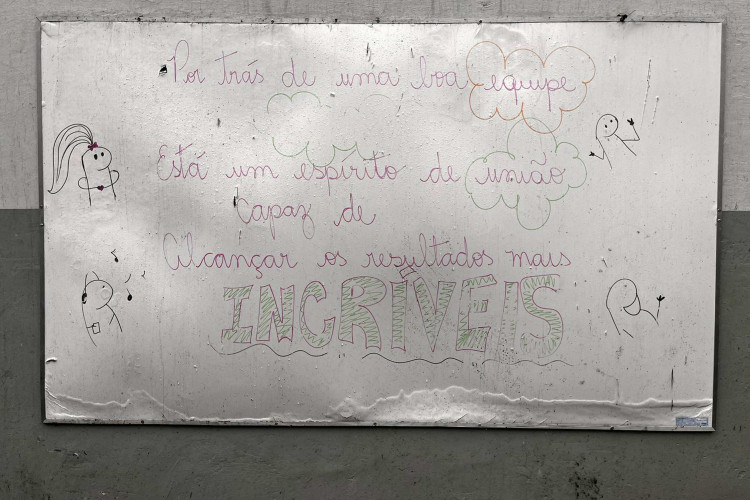 Por trás de uma boa equipe
Está um espírito de união
Capaz de
Alcançar os resultados mais
INCRÍVEIS